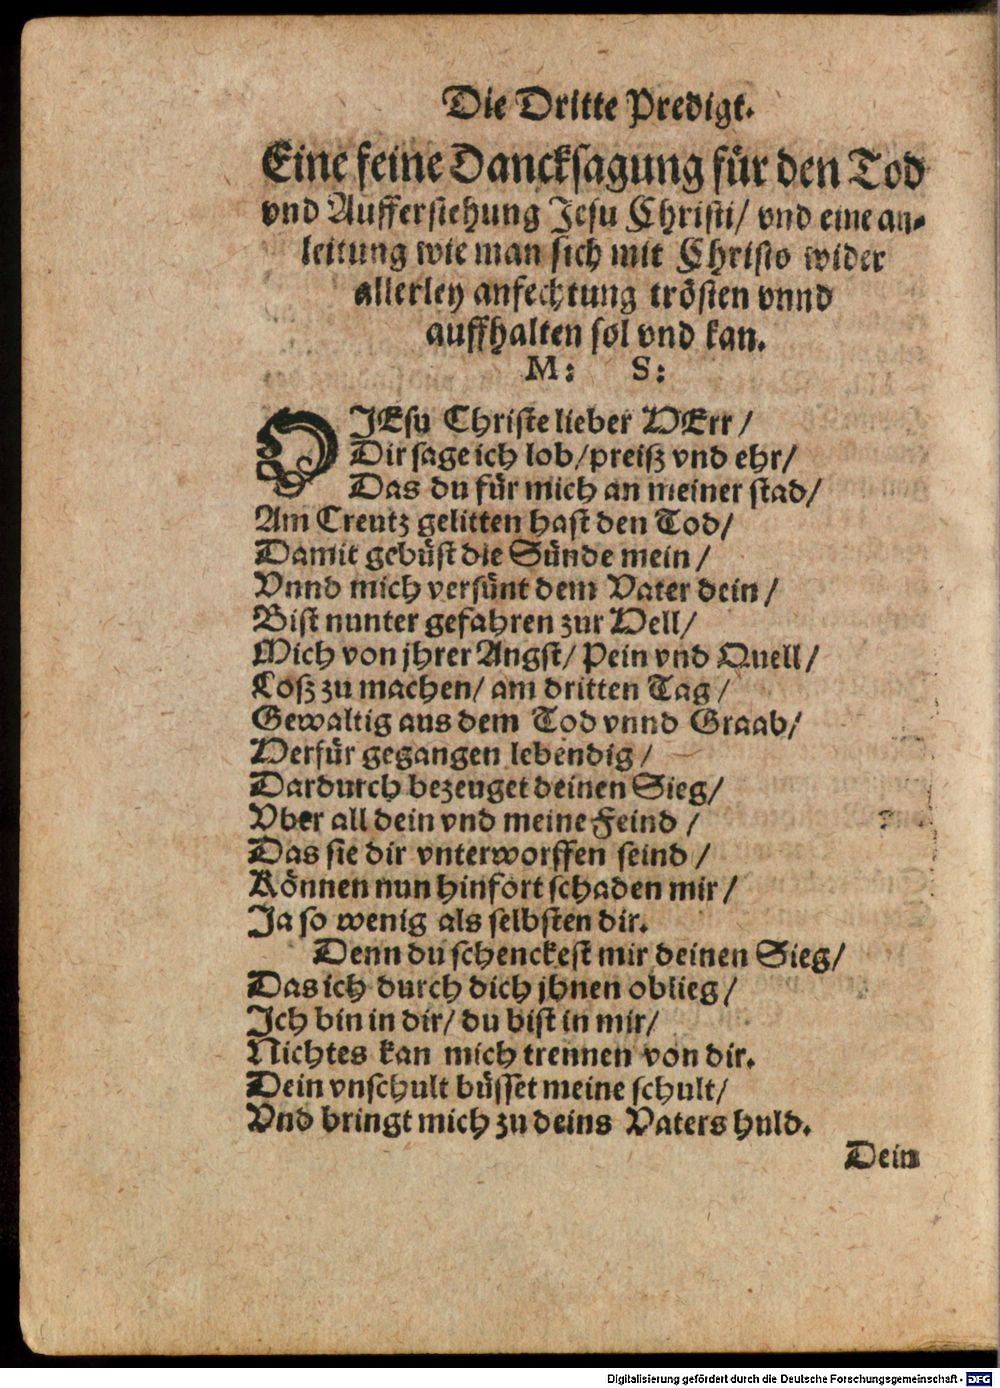 Die Dritte Predigt.
Eine feine Dancksagung für den Tod
vnd Aufferstehung Jesu Christi/ vnd eine an-
leitung wie man sich mit Christo wider
allerley anfechtung trösten vnnd
auffhalten sol vnd kan.
M: S:
O JEsu Christe lieber HErr/
Dir sage ich lob/preiß vnd ehr/
Das du für mich an meiner stad/
Am Creutz gelitten hast den Tod/
Damit gebüst die Sünde mein/
Vnnd mich versünt dem Vater dein/
Bist nunter gefahren zur Hell/
Mich von jhrer Angst/ Pein vnd Quell/
Loß zu machen/ am dritten Tag/
Gewaltig aus dem Tod vnnd Graab/
Herfür gegangen lebendig/
Dardurch bezeuget deinen Sieg/
Vber all dein vnd meine Feind/
Das sie dir vnterworffen seind/
Können nun hinfort schaden mir/
Ja so wenig als selbsten dir.
Denn du schenckest mir deinen Sieg/
Das ich durch dich jhnen oblieg/
Ich bin in dir/ du bist in mir/
Nichtes kan mich trennen von dir.
Dein vnschult büsset meine schult/
Vnd bringt mich zu deins Vaters huld.
Dein
Digitalisierung gefördert durch die Deutsche Forschungsgemeinschaft - DFG